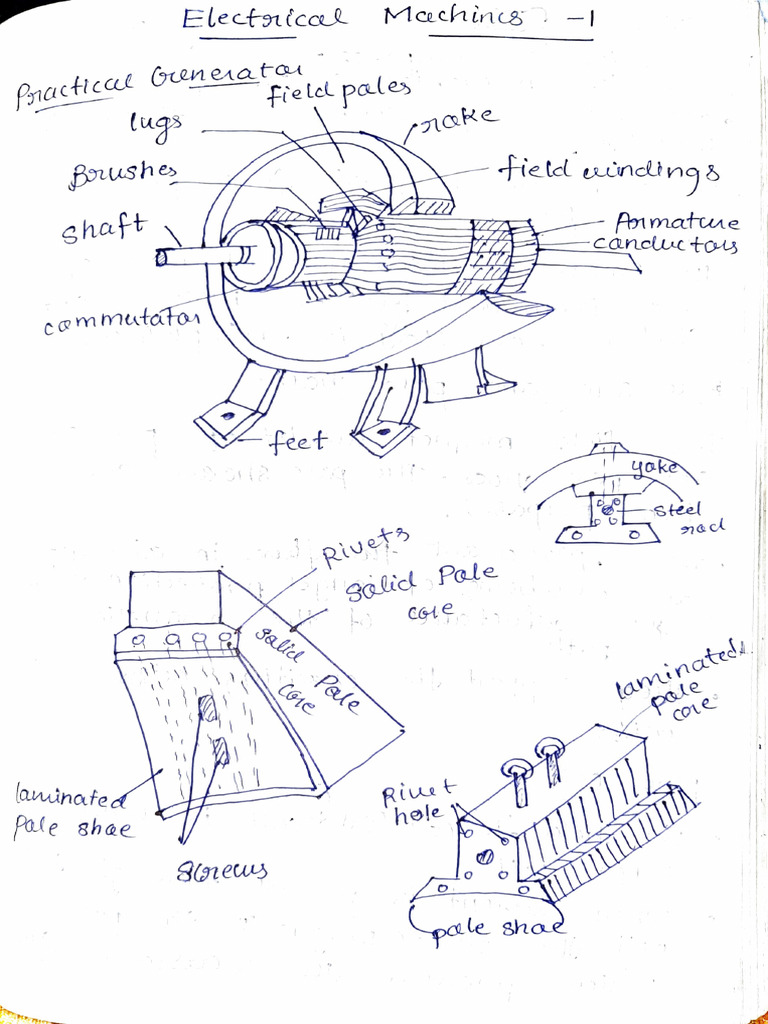 Electrical Machines - 1
Practical Generator
field poles
lugs
yoke
Brushes
field windings
shaft
Armature
conductors
commutator
feet
yoke
steel
rod
Rivets
solid Pole
core
solid Pole
core
laminated
pole
core
laminated
pole shoe
Rivet
hole
screws
pole shoe